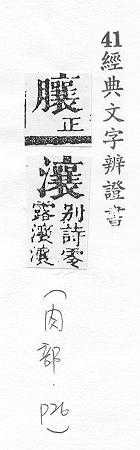 41經典文字辨證書
䑋正
瀼別詩零
露瀼瀼
(肉部.P26)